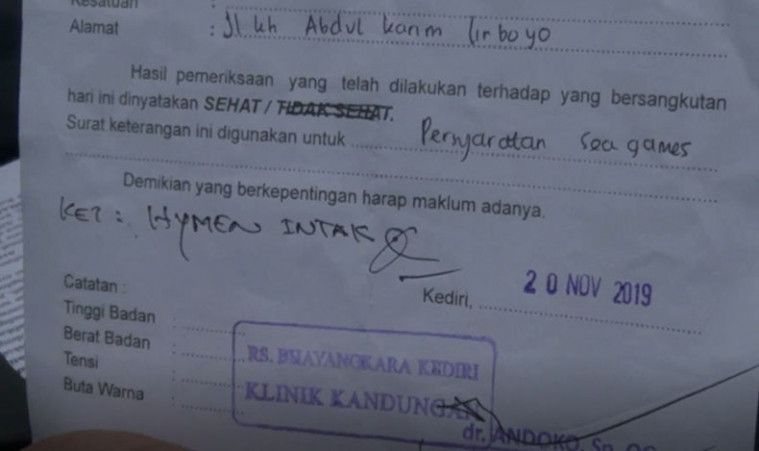 Kesatuan :
Alamat : Jl kh Abdul karim lirboyo
Hasil pemeriksaan yang telah dilakukan terhadap yang bersangkutan
hari ini dinyatakan SEHAT / TIDAK SEHAT.
Surat keterangan ini digunakan untuk ........ Persyaratan sea games
Demikian yang berkepentingan harap maklum adanya.
KET : HYMEN INTAK
Kediri, 20 NOV 2019
Catatan :
Tinggi Badan :
Berat Badan :
Tensi :
Buta Warna :
RS. BHAYANGKARA KEDIRI
KLINIK KANDUNGAN
dr. ANDOKO, Sp. OG